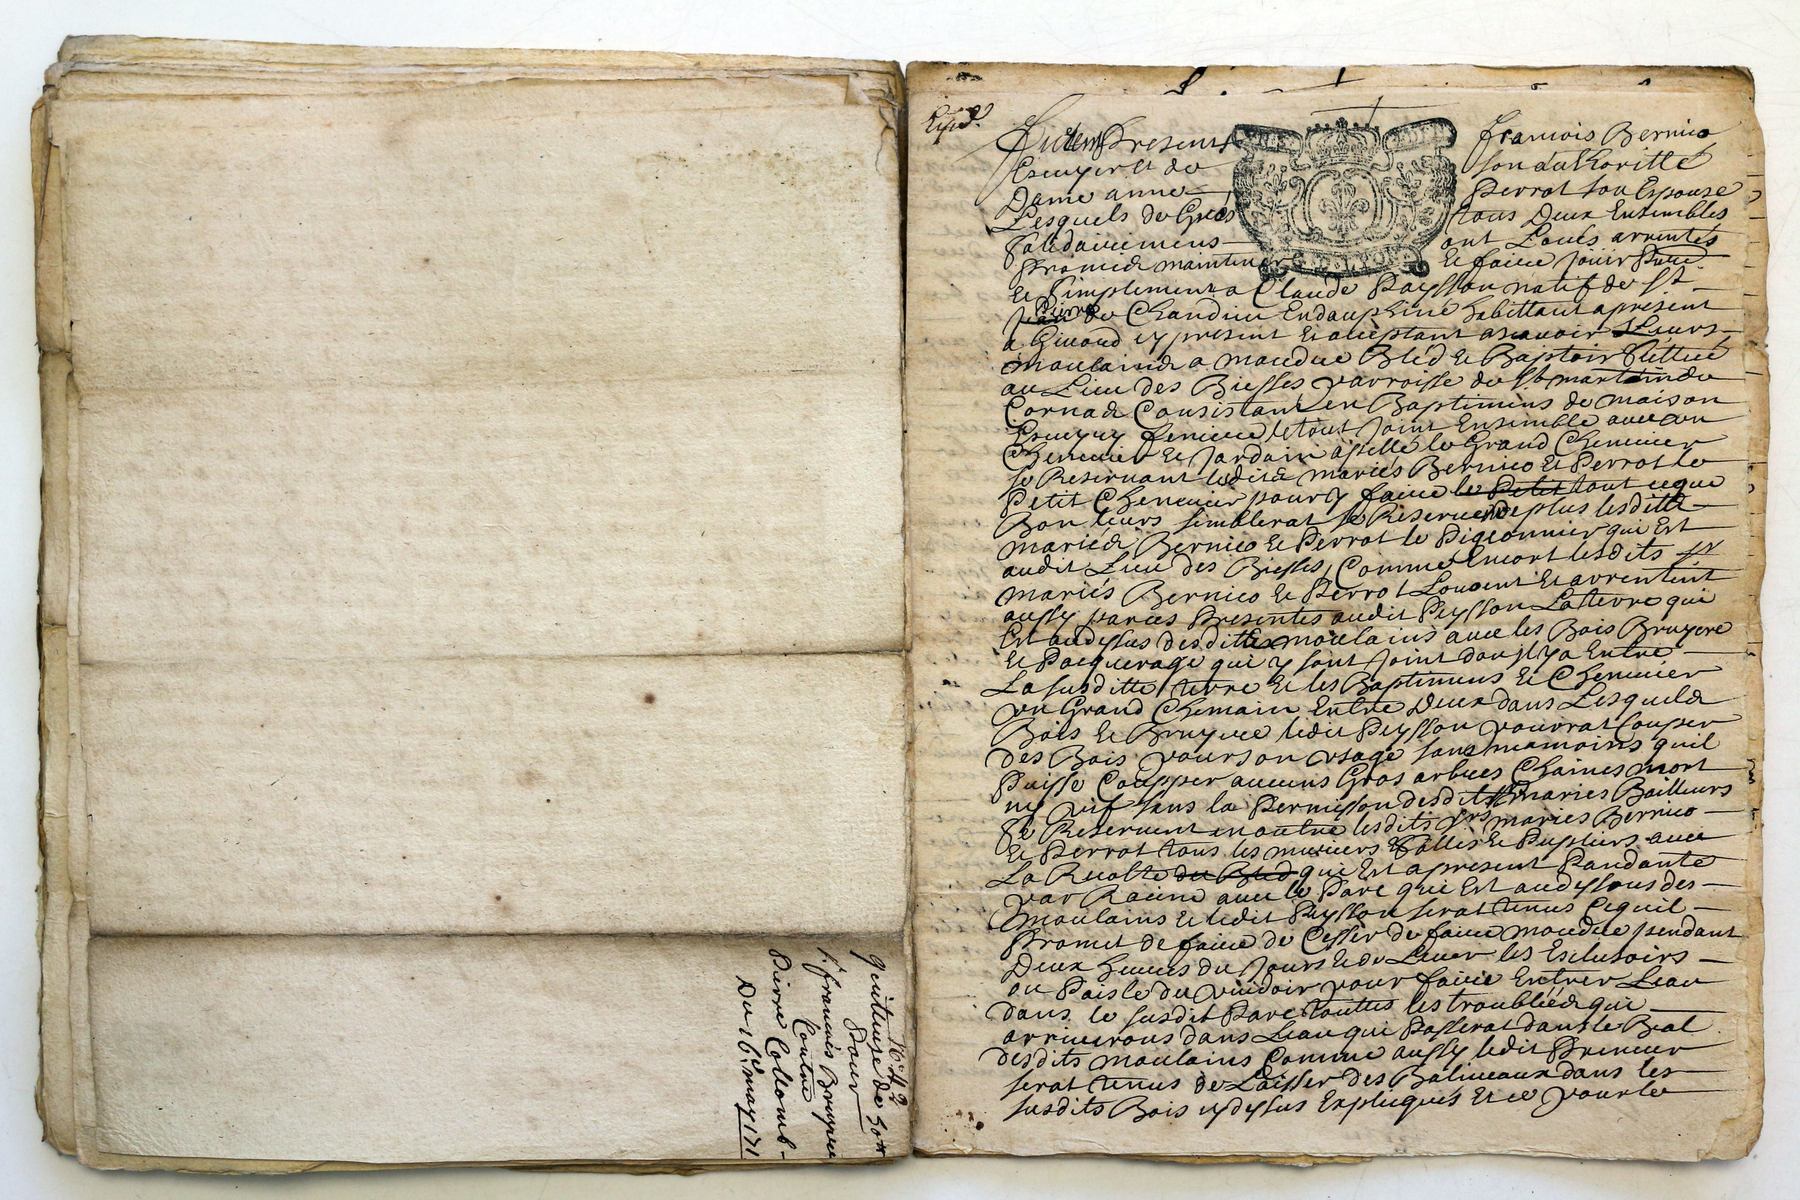 N° 42
quittense de 30ᵗᵗ
Pour
Sʳ francois Bruyere
Contre
Pierre Collomb-
Du 16ᵉ may 171
Expᵉᵉ
Furent Presents francois Bernico
Escuyer Et de son authoritté
Dame anne Perrot son Espouse
Lesquels de Grés tous Deux Ensembles
Solidairemens ont Loués arrentés
Promis maintenir Et faire jouir Pure
Et Simplement a Claude Peysson natif de St
Pierre de Chandieu Endauphiné habittant apresent
a Givord cy present Et aceptant ascavoir Leurs
moulains a moudre Bled Et Baptoir Scittué
au Lieu des Biesses parroisse de St martin de
Cornas Consistant en Baptimens de maison
Escuyry feniere le tout joint Ensemble avec un
Chenevier Et Jardain apellé le Grand Chenevier
se Reservant lesdits mariés Bernico Et Perrot le
Petit Chenevier pour y faire le Petit tout ceque
Bon leurs semblerat se Reservent deplus lesditts
mariés Bernico Et Perrot le Pigeonnier qui Est
audit Lieu des Biesses, Comme Encort lesdits Srs
mariés Bernico Et Perrot Louent Et arrentent
aussy parces Presentes audit Peysson La terre qui
Est audessus desdittes moulains avec les Bois Bruyere
Et Pacquerage qui y sont joint dont jl y a Entre
La susditte terre Et les Baptimens Et Chenevier
un Grand Chemain Entre Deux dans Lesquels
Bois Et Bruyere ledit Peysson pourrat Couper
des Bois pour son usage sans neamoins quil
Puisse Coupper aucuns Gros arbres Chaines mort
ny vif sans la Permission desdits mariés Bailleurs
se Reservent en outre lesdits Srs mariés Bernico
Et Perrot tous les muriers Et Pupliers avec
La Recolte du Bled qui Est apresent Pandante
par Racine avec le Parc qui Est audessous des
moulains Et ledit Peysson serat tenus Cequil
Promet de faire de Cesser de faire moudre pendant
Deux heures du Jours Et de Lever les Esclusoirs
ou Paisle du vuidoir pour faire Entrer Leau
dans le susdit Parc touttes les troublées qui
arriverons dans Leau qui Passerat dans le Beal
desdits moulains Comme aussy ledit Preneur
serat tenus de Laisser des Baliveaux dans les
susdits Bois cydessus Expliqués Et ce pour le